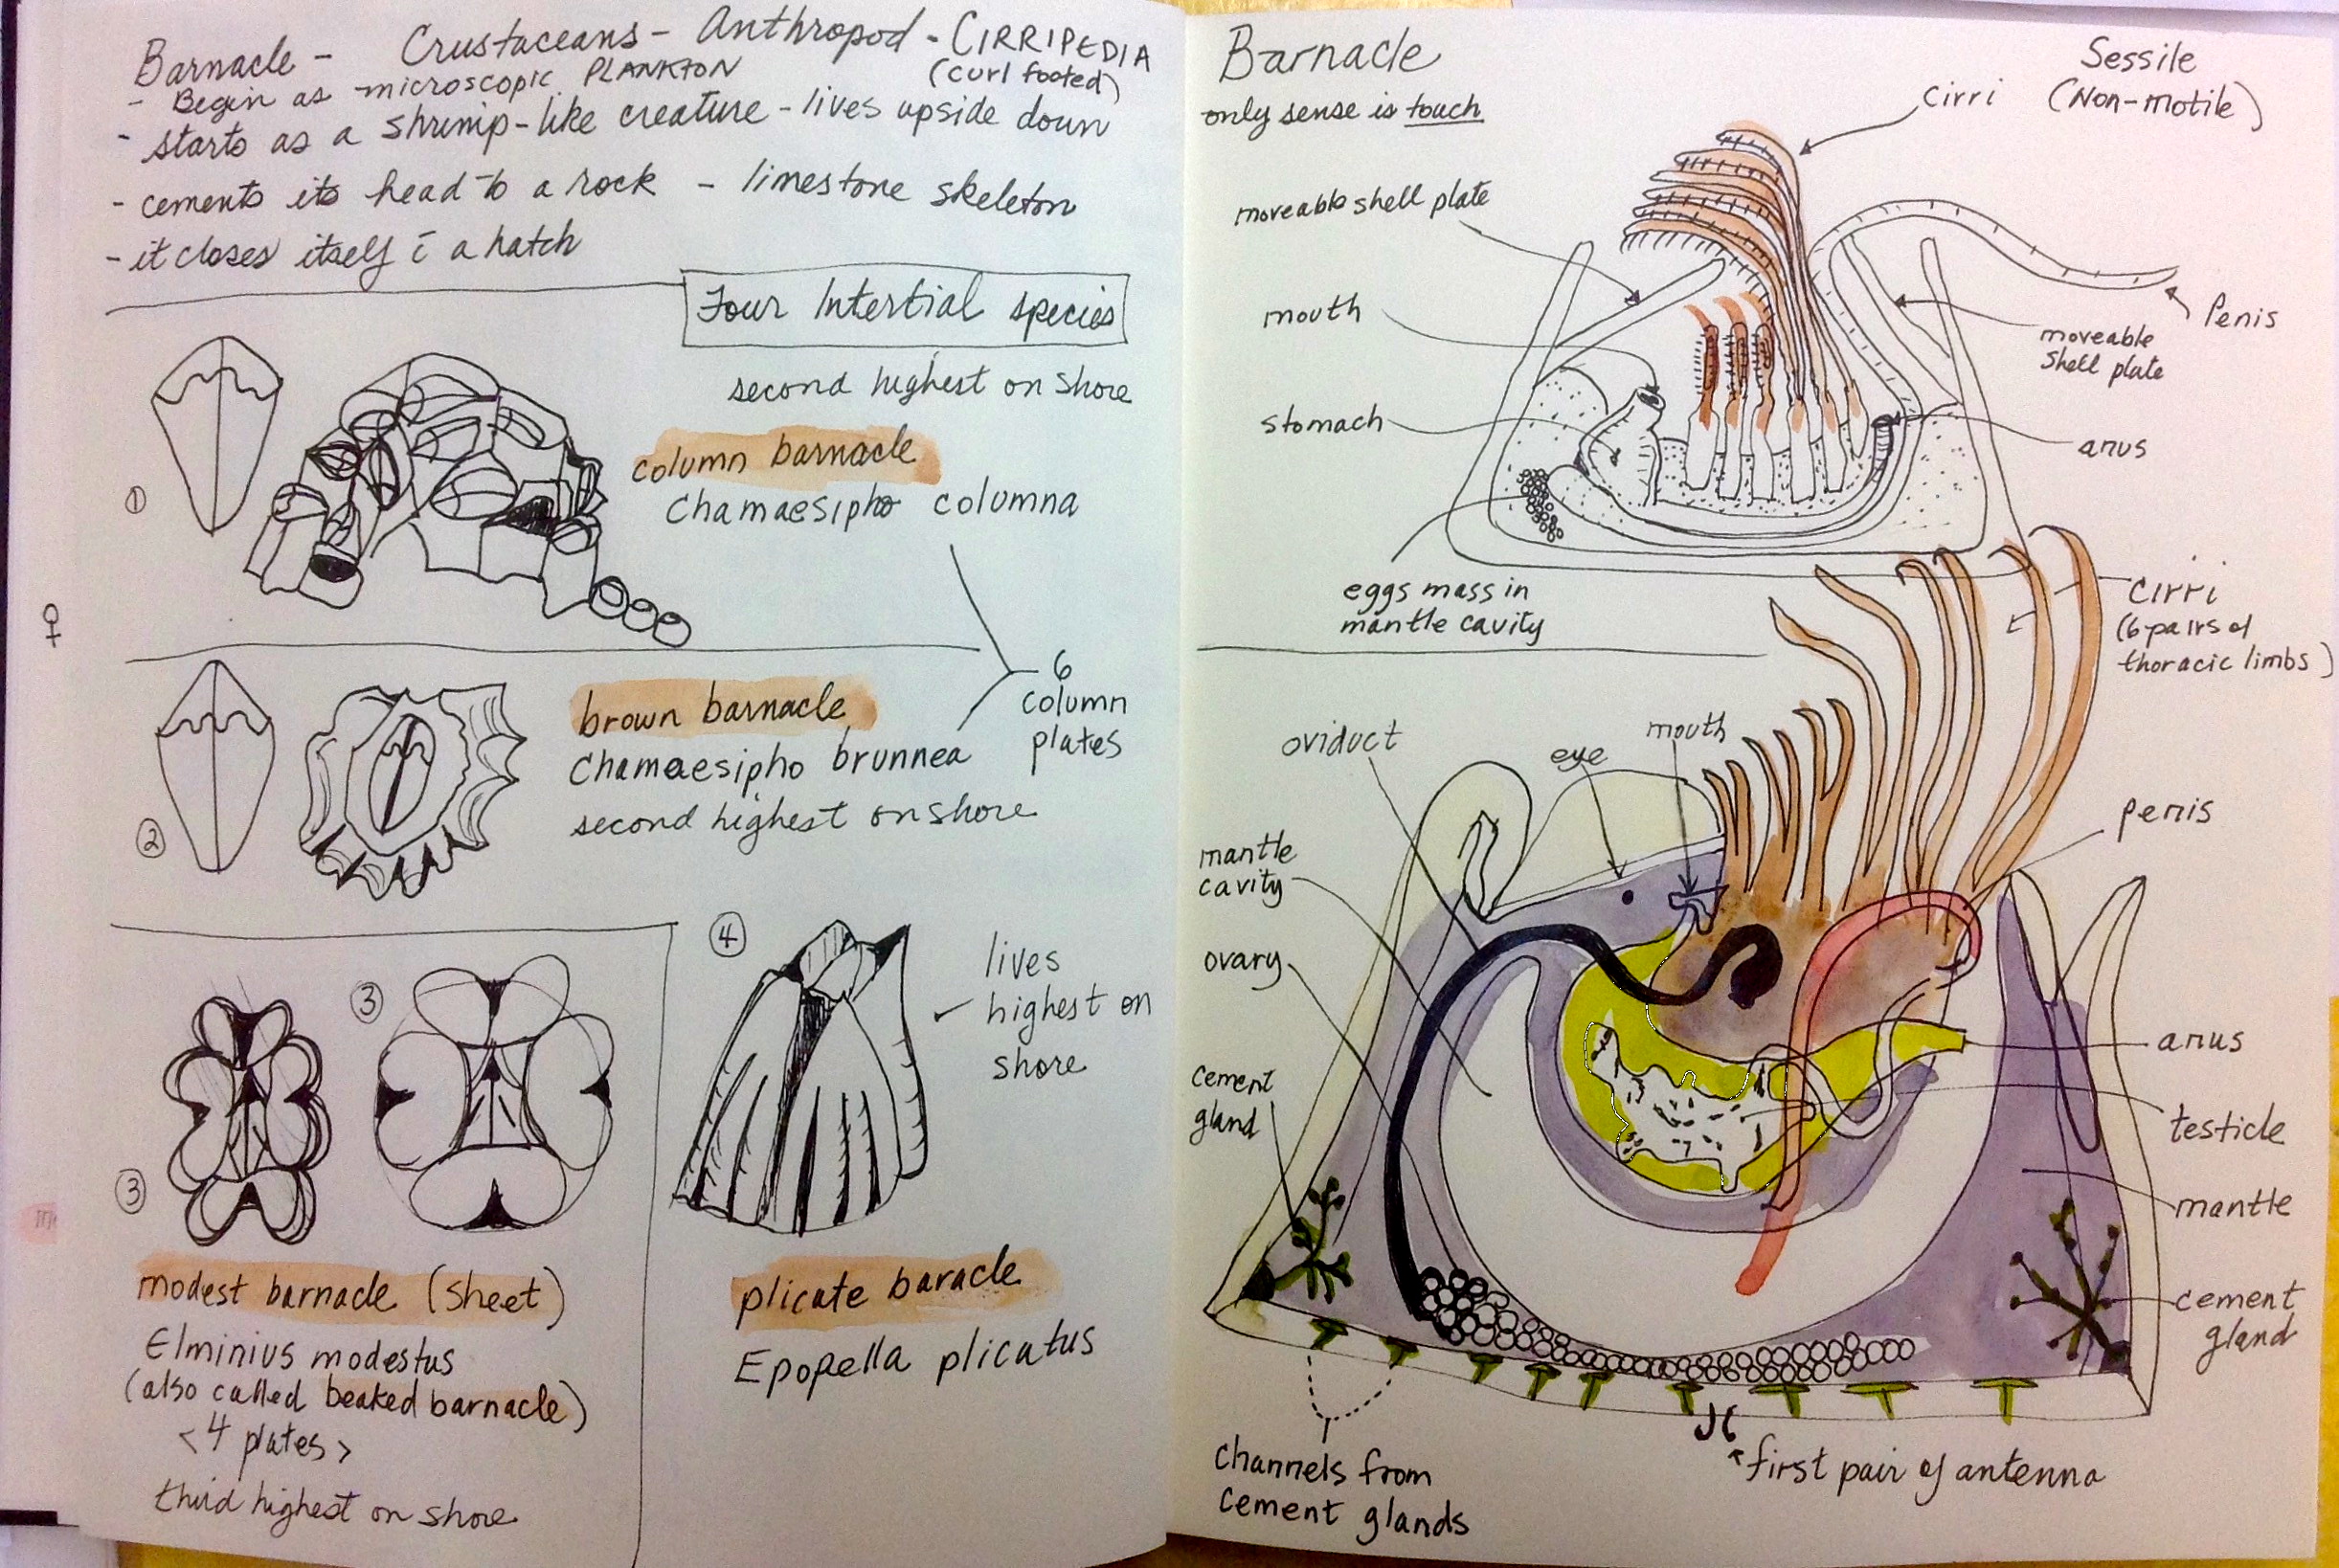 Barnacle - Crustaceans - Anthropod - CIRRIPEDIA
(curl footed)
- Begin as microscopic PLANKTON
- starts as a shrimp-like creature - lives upside down
- cements its head to a rock - limestone skeleton
- it closes itself c̄ a hatch
Four Intertial species
second highest on shore
①
column barnacle
Chamaesipho columna
♀
6
column
plates
②
brown barnacle
Chamaesipho brunnea
second highest on shore
③
③
modest barnacle (sheet)
Elminius modestus
(also called beaked barnacle)
<4 plates>
third highest on shore
④
lives
highest on
shore
plicate baracle
Epopella plicatus
Barnacle
only sense is touch
Sessile
(Non-motile)
cirri
moveable shell plate
mouth
stomach
eggs mass in
mantle cavity
Penis
moveable
shell plate
anus
cirri
(6 pairs of
thoracic limbs)
oviduct
eye
mouth
penis
mantle
cavity
ovary
cement
gland
anus
testicle
mantle
cement
gland
channels from
cement glands
first pair of antenna